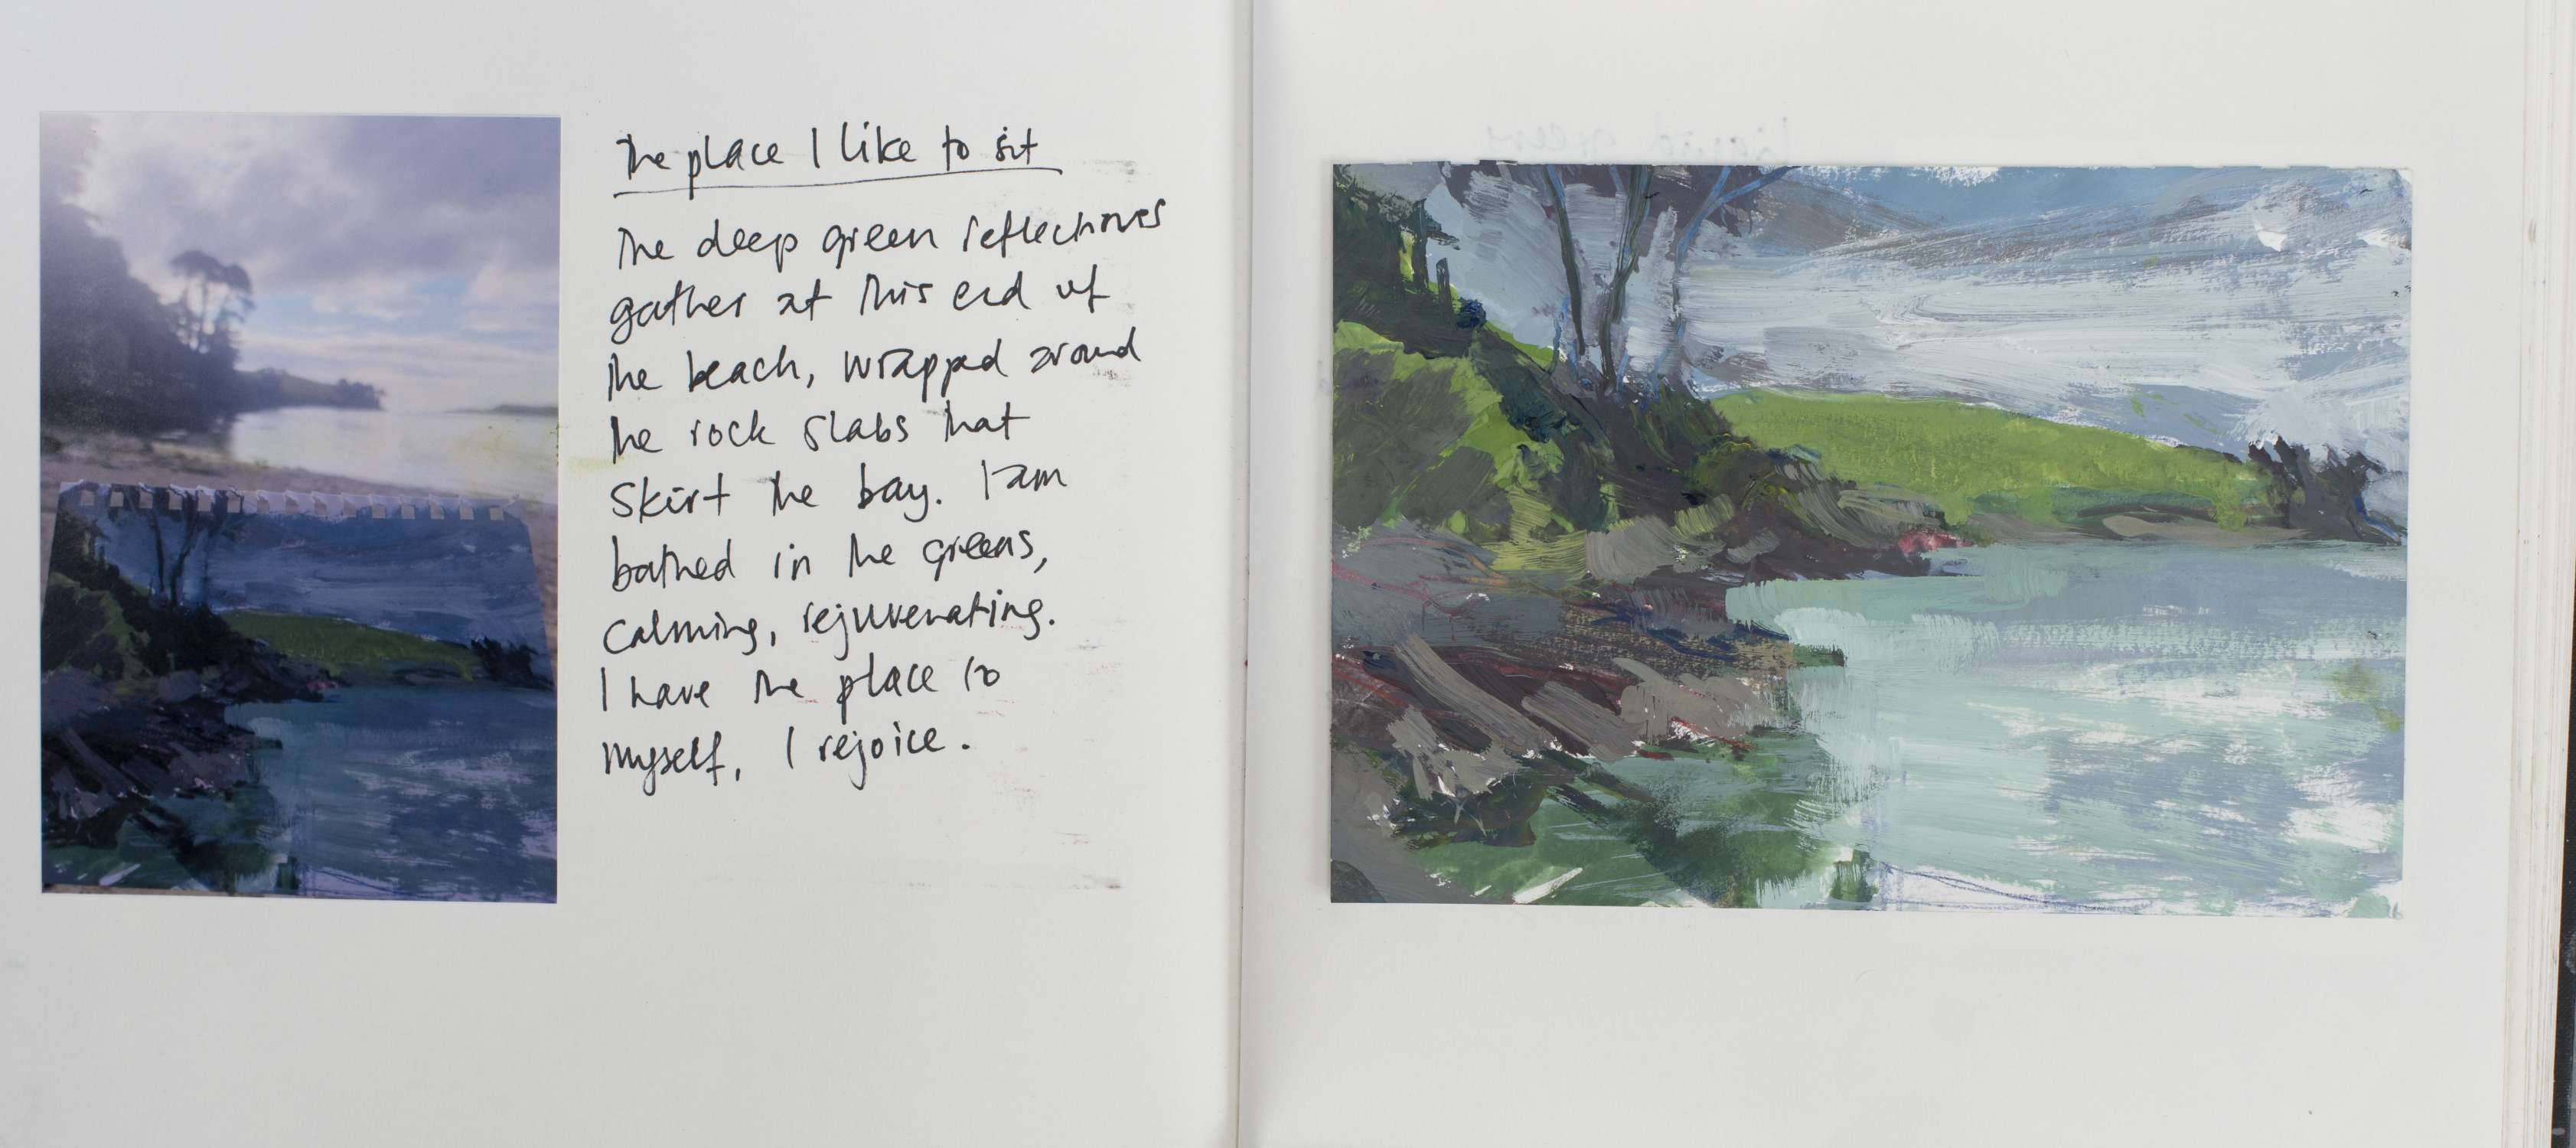 The place I like to sit
The deep green reflections
gather at this end of
the beach, wrapped around
the rock slabs that
skirt the bay. I am
bathed in the greens,
calming, rejuvenating.
I have the place to
myself, I rejoice.